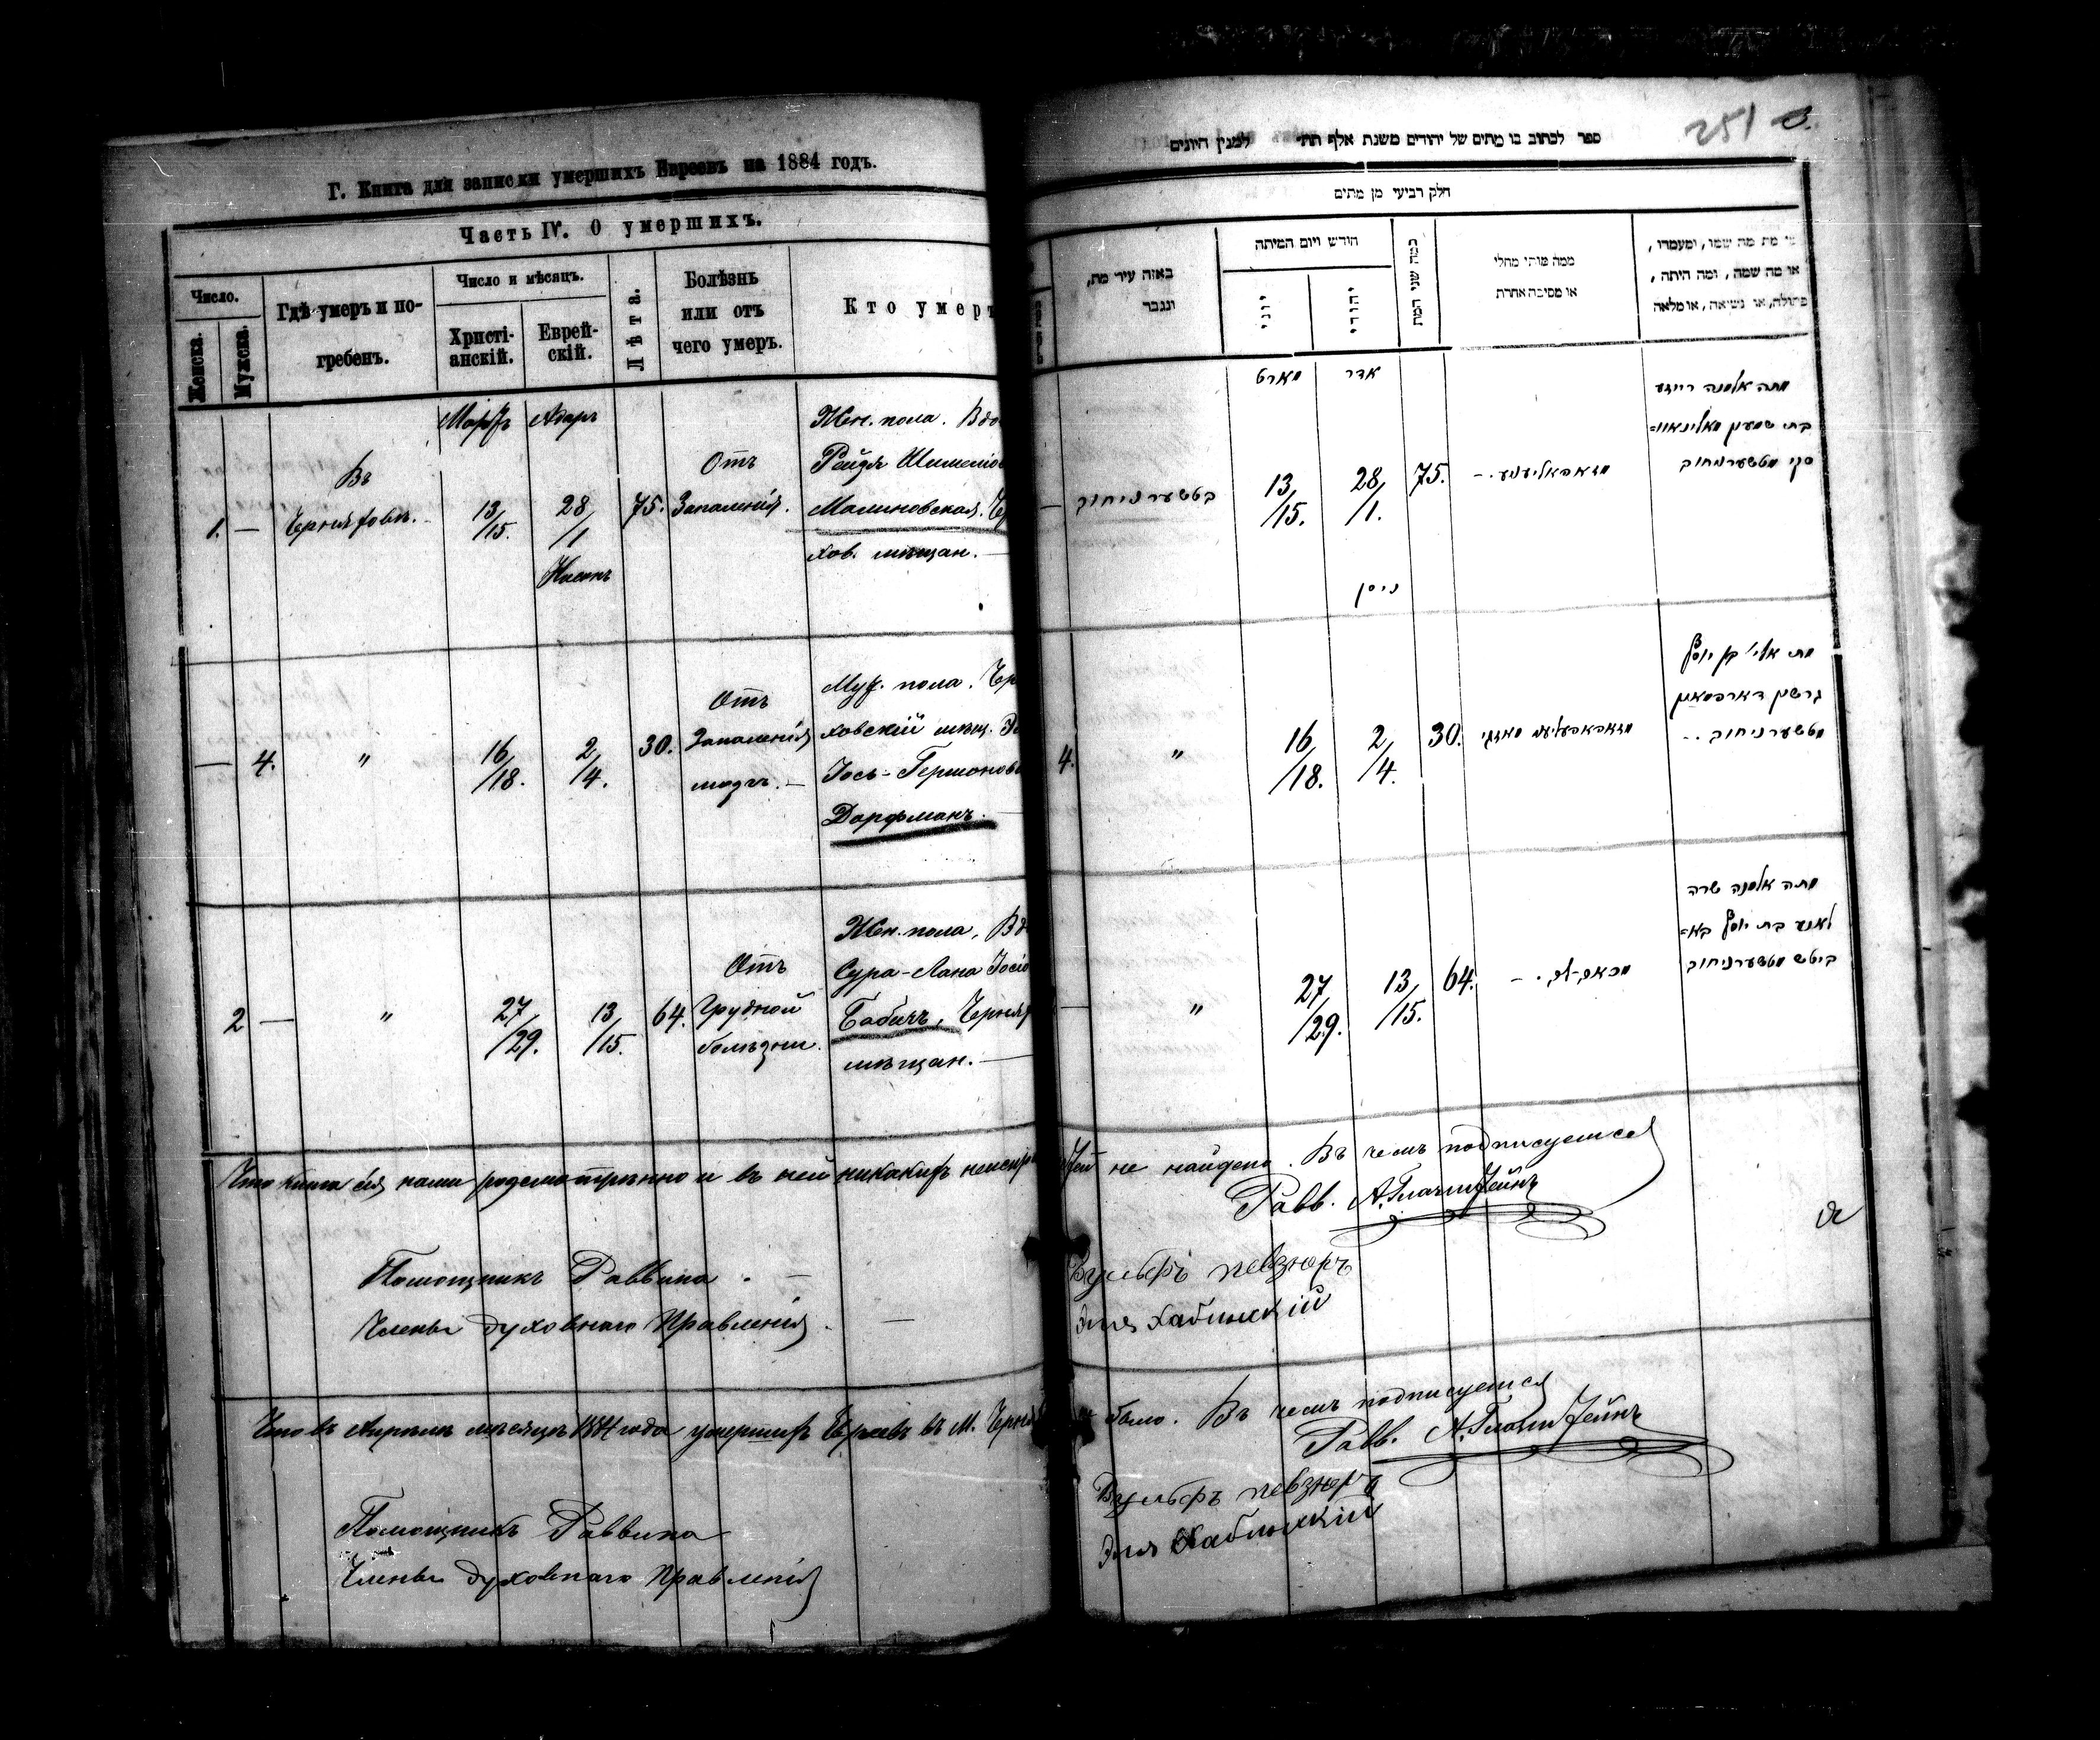 Г. Книга для записки умершихъ Евреевъ на 1884 годъ.
Часть IV. О умершихъ.
Число.
Женска.
Мужска.
Гдѣ умеръ и погребенъ.
Число и мѣсяцъ.
Христіанскій.
Еврейскій.
Лѣта.
Болѣзнь или отъ чего умеръ.
Кто умер
Мартъ Адаръ
1. —
Въ
Черняховѣ.
13/15.
28/1
Нисонъ
75.
Отъ
Запаленія.
Жен. пола. Вдо
Рейзя Шимело
Малиновская. Че
хов. мѣщан. —
— 4.
"
16/18.
2/4.
30.
Отъ
Запаленія
мозгъ. —
Муж. пола. Чер
ховскій мѣщ.
Іось-Гершонов
Дорфманъ.
2 —
"
27/29.
13/15.
64.
Отъ
Грудной
болѣзни.
Жен. пола, Вд
Сура-Лана Іосіо
Бабичъ, Черня
мѣщан. —
Что книга сія нами разсмотрѣнно и въ ней никакихъ неиспр
Помощникъ Раввина. —
Члены духовнаго Правленія. —
Что въ Апрѣлѣ мѣсяцѣ 1884 года умершихъ Евреевъ въ М. Черня
Помощникъ Раввина
Члены духовнаго Правленія
251
ספר לכתוב בו מתים של יהודים משנת אלף תת׳ למנין היונים
חלק רביעי מן מתים
באזה עיר מת,
ונגבר
חודש ויום המיתה
יוני
יהודי
כמה שני המת
ממה מותו מחלי
או מסיבה אחרת
מי מת מה שמו, ומעמדו,
או מה שמה, ומה היתה,
בתולה, או נשואה, או מלאה
מארט אדר
—
בטשערניחוב
13/15.
28/1.
ניסן
75.
מתה אלמנה רייזע
בת שמעון מאלינאוו=
סקי מטשערניחוב
4.
"
16/18.
2/4.
30.
מת אלי׳ בן יוסף
גרשון דארפמאן
מטשערניחוב
—
"
27/29.
13/15.
64.
מתה אלמנה שרה
לאנע בת יוסף בא=
ביטש מטשערניחוב
тей не найдено. Въ чемъ подписуемся
Равв. А. Глатштейнъ
Вульфъ певзнеръ
Эля Хаблицкій
было. Въ чемъ подписуемся
Равв. А. Глатштейнъ
Вульфъ певзнеръ
Эля Хаблицкій